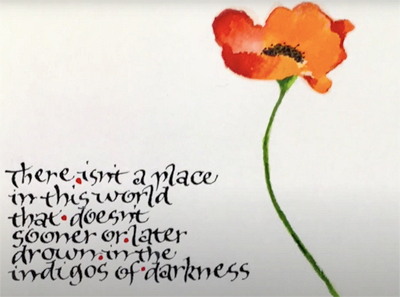 There isn't a place
in this world
that doesn't
sooner or later
drown in the
indigos of darkness